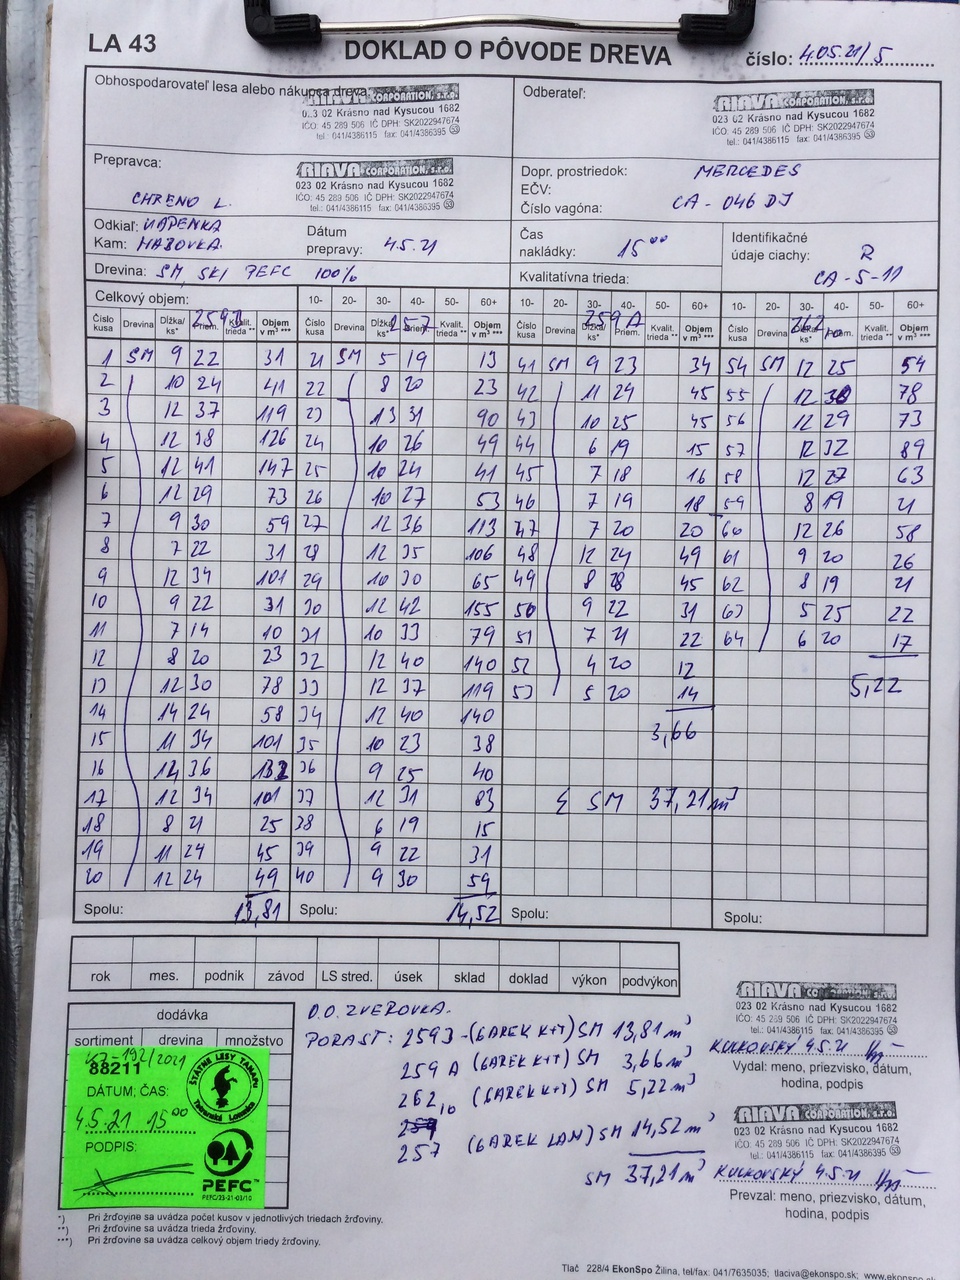 LA 43
DOKLAD O PÔVODE DREVA
číslo: 4.05.21/5
Obhospodarovateľ lesa alebo nákupca dreva:
RIAVA CORPORATION, s.r.o.
023 02 Krásno nad Kysucou 1682
IČO: 45 289 506 IČ DPH: SK2022947674
tel.: 041/4386115 fax: 041/4386395
Odberateľ:
RIAVA CORPORATION, s.r.o.
023 02 Krásno nad Kysucou 1682
IČO: 45 289 506 IČ DPH: SK2022947674
tel.: 041/4386115 fax: 041/4386395
Prepravca:
CHRENO L.
RIAVA CORPORATION, s.r.o.
023 02 Krásno nad Kysucou 1682
IČO: 45 289 506 IČ DPH: SK2022947674
tel.: 041/4386115 fax: 041/4386395
Dopr. prostriedok: MERCEDES
EČV:
Číslo vagóna: CA - 046 DJ
Odkiaľ: VAPENKA
Kam: HABOVKA
Dátum
prepravy: 4.5.21
Čas
nakládky: 15 00
Identifikačné
údaje ciachy: R
CA - 5 - 11
Drevina: SM, SKI PEFC 100%
Kvalitatívna trieda:
Celkový objem: 10- 20- 30- 40- 50- 60+ 10- 20- 30- 40- 50- 60+ 10- 20- 30- 40- 50- 60+
2593 257 259 A 262 10
Číslo kusa Drevina Dĺžka/ ks* Priem. Kvalit. trieda ** Objem v m³ *** Číslo kusa Drevina Dĺžka/ ks* Priem. Kvalit. trieda ** Objem v m³ *** Číslo kusa Drevina Dĺžka/ ks* Priem. Kvalit. trieda ** Objem v m³ *** Číslo kusa Drevina Dĺžka/ ks* Priem. Kvalit. trieda ** Objem v m³ ***
1 SM 9 22 31 21 SM 5 19 13 41 SM 9 23 34 54 SM 12 25 54
2 10 24 41 22 8 20 23 42 11 24 45 55 12 30 78
3 12 37 119 23 13 31 90 43 10 25 45 56 12 29 73
4 12 38 126 24 10 26 49 44 6 19 15 57 12 32 89
5 12 41 147 25 10 24 41 45 7 18 16 58 12 27 63
6 12 29 73 26 10 27 53 46 7 19 18 59 8 19 21
7 9 30 59 27 12 36 113 47 7 20 20 60 12 26 58
8 7 22 31 28 12 35 106 48 12 24 49 61 9 20 26
9 12 34 101 29 10 30 65 49 8 28 45 62 8 19 21
10 9 22 31 30 12 42 155 50 9 22 31 63 5 25 22
11 7 14 10 31 10 33 79 51 7 21 22 64 6 20 17
12 8 20 23 32 12 40 140 52 4 20 12
13 12 30 78 33 12 37 119 53 5 20 14 5,22
14 14 24 58 34 12 40 140 3,66
15 11 34 101 35 10 23 38
16 14 36 132 36 9 25 40
17 12 34 101 37 12 31 83 Σ SM 37,21 m³
18 8 21 25 38 6 19 15
19 11 24 45 39 9 22 31
20 12 24 49 40 9 30 59
Spolu: 13,81 Spolu: 14,52 Spolu: Spolu:
rok mes. podnik závod LS stred. úsek sklad doklad výkon podvýkon
dodávka
sortiment drevina množstvo
88211
ŠTÁTNE LESY TANAPU
Tatranská Lomnica
DÁTUM; ČAS:
4.5.21 15 00
PODPIS:
PEFC™
PEFC/23-21-03/10
O.O. ZVEROVKA.
PORAST: 2593 - (6AREK K+T) SM 13,81 m³
259 A (6AREK K+T) SM 3,66 m³
262 10 (6AREK K+T) SM 5,22 m³
257 (6AREK LAN) SM 14,52 m³
SM 37,21 m³
RIAVA CORPORATION, s.r.o.
023 02 Krásno nad Kysucou 1682
IČO: 45 289 506 IČ DPH: SK2022947674
tel.: 041/4386115 fax: 041/4386395
KULKOVSKÝ 4.5.21
Vydal: meno, priezvisko, dátum,
hodina, podpis
RIAVA CORPORATION, s.r.o.
023 02 Krásno nad Kysucou 1682
IČO: 45 289 506 IČ DPH: SK2022947674
tel.: 041/4386115 fax: 041/4386395
KULKOVSKÝ 4.5.21
Prevzal: meno, priezvisko, dátum,
hodina, podpis
*) Pri žrďovine sa uvádza počet kusov v jednotlivých triedach žrďoviny.
**) Pri žrďovine sa uvádza trieda žrďoviny.
***) Pri žrďovine sa uvádza celkový objem triedy žrďoviny.
Tlač 228/4 EkonSpo Žilina, tel/fax: 041/7635035; tlaciva@ekonspo.sk;